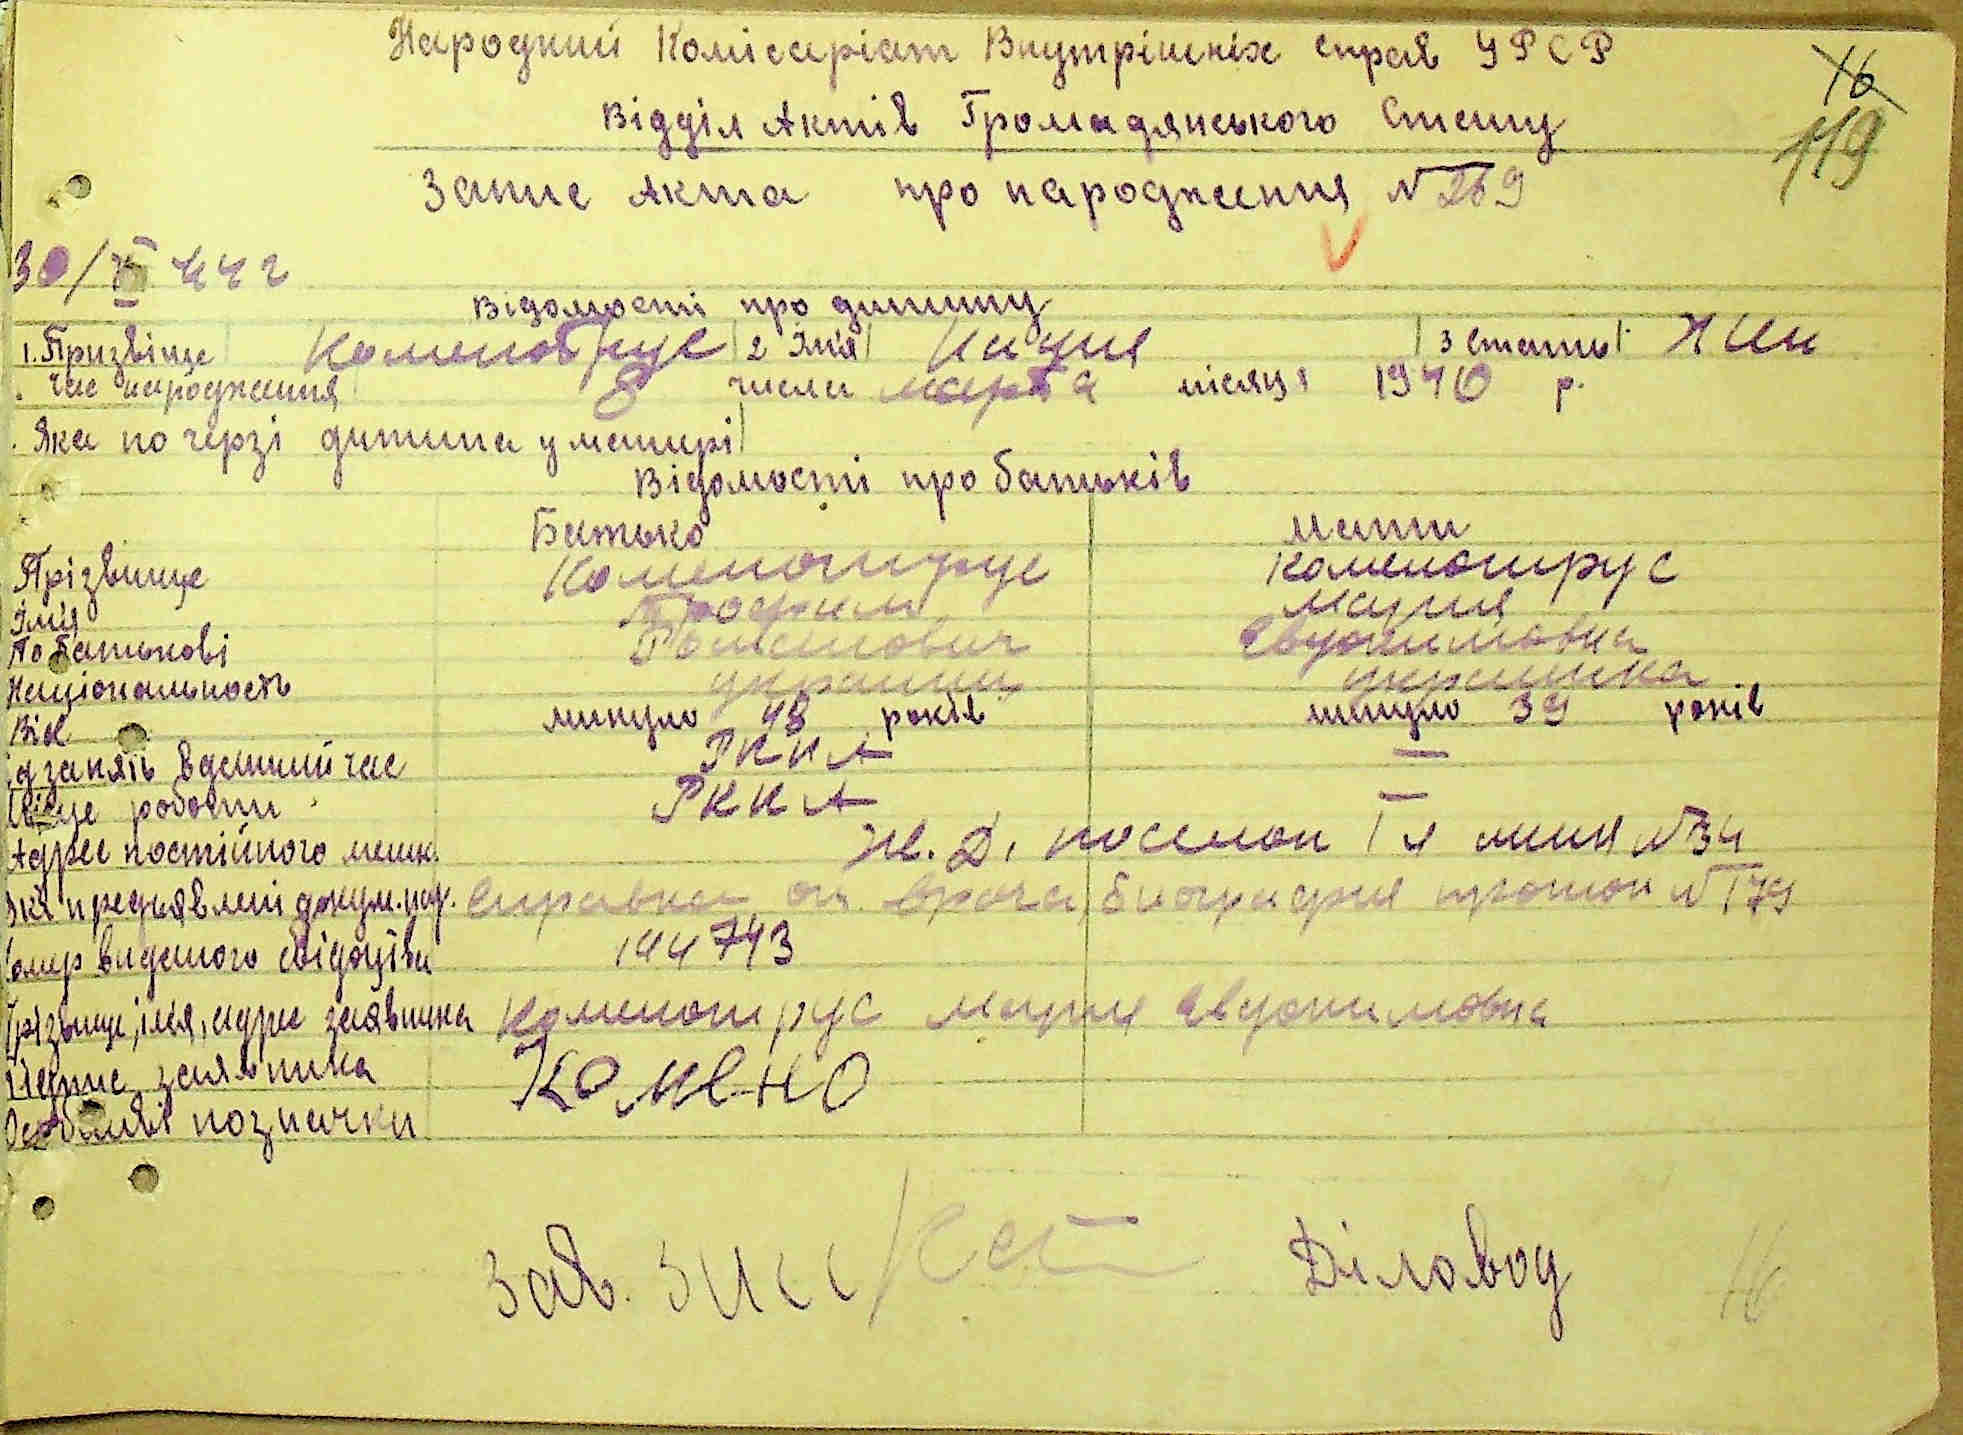 Народний Комісаріат Внутрішніх справ УРСР
16
Відділ Актів Громадянського Стану
119
Запис Акта про народження № 269
30/ 44 г
Відомості про дитину
1. Прізвіще 2 Імя 3 Стать жен
час народження 8 числа марта місяця 1940 р.
Яка по черзі дитина у матирі
Відомості про батьків
Батько мати
Прізвище Коменотрус Коменотрус
Імія Трофим Мария
По батькові Романович Евдокимовна
Національность украинец украинка
Вік минуло 48 років минуло 39 років
д занять в даний час РККА —
місце роботи РККА —
Адрес постійного мешк. Ж. Д. поселок 1я линия № 34
які предъявлені докум. нар. Справка от врача, биография протокол № 179
номер виданого свідоцтва 144743
Прізвище, імя, адрес заявника Коменотрус Мария Евдокимовна
Підпис заявника Комено
Особливі позначки
Зав. Діловод
16